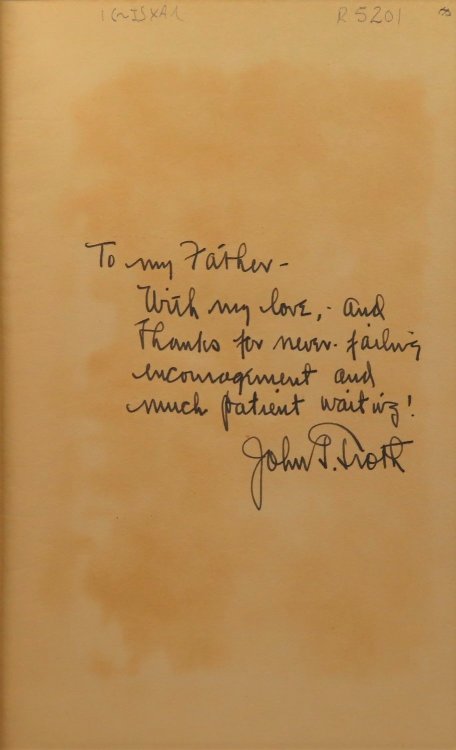 R 5201
To my Father -
With my love, - and
Thanks for never-failing
encouragement and
much patient waiting!
John P. Troth